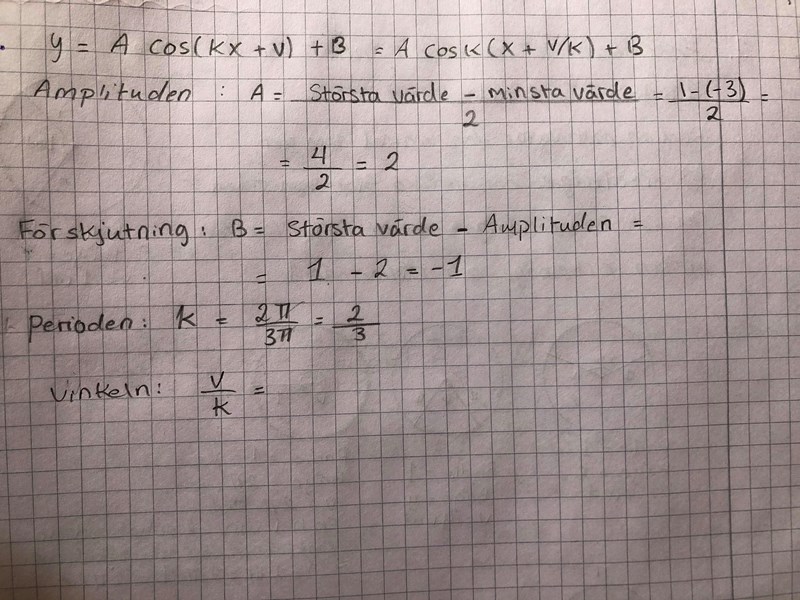 y = A cos(kx + v) + B = A cos k (x + v/k) + B
Amplituden : A = Största värde - minsta värde / 2 = 1-(-3) / 2 =
= 4/2 = 2
Förskjutning : B = Största värde - Amplituden =
= 1 - 2 = -1
Perioden : k = 2π/3π = 2/3
Vinkeln : v/k =